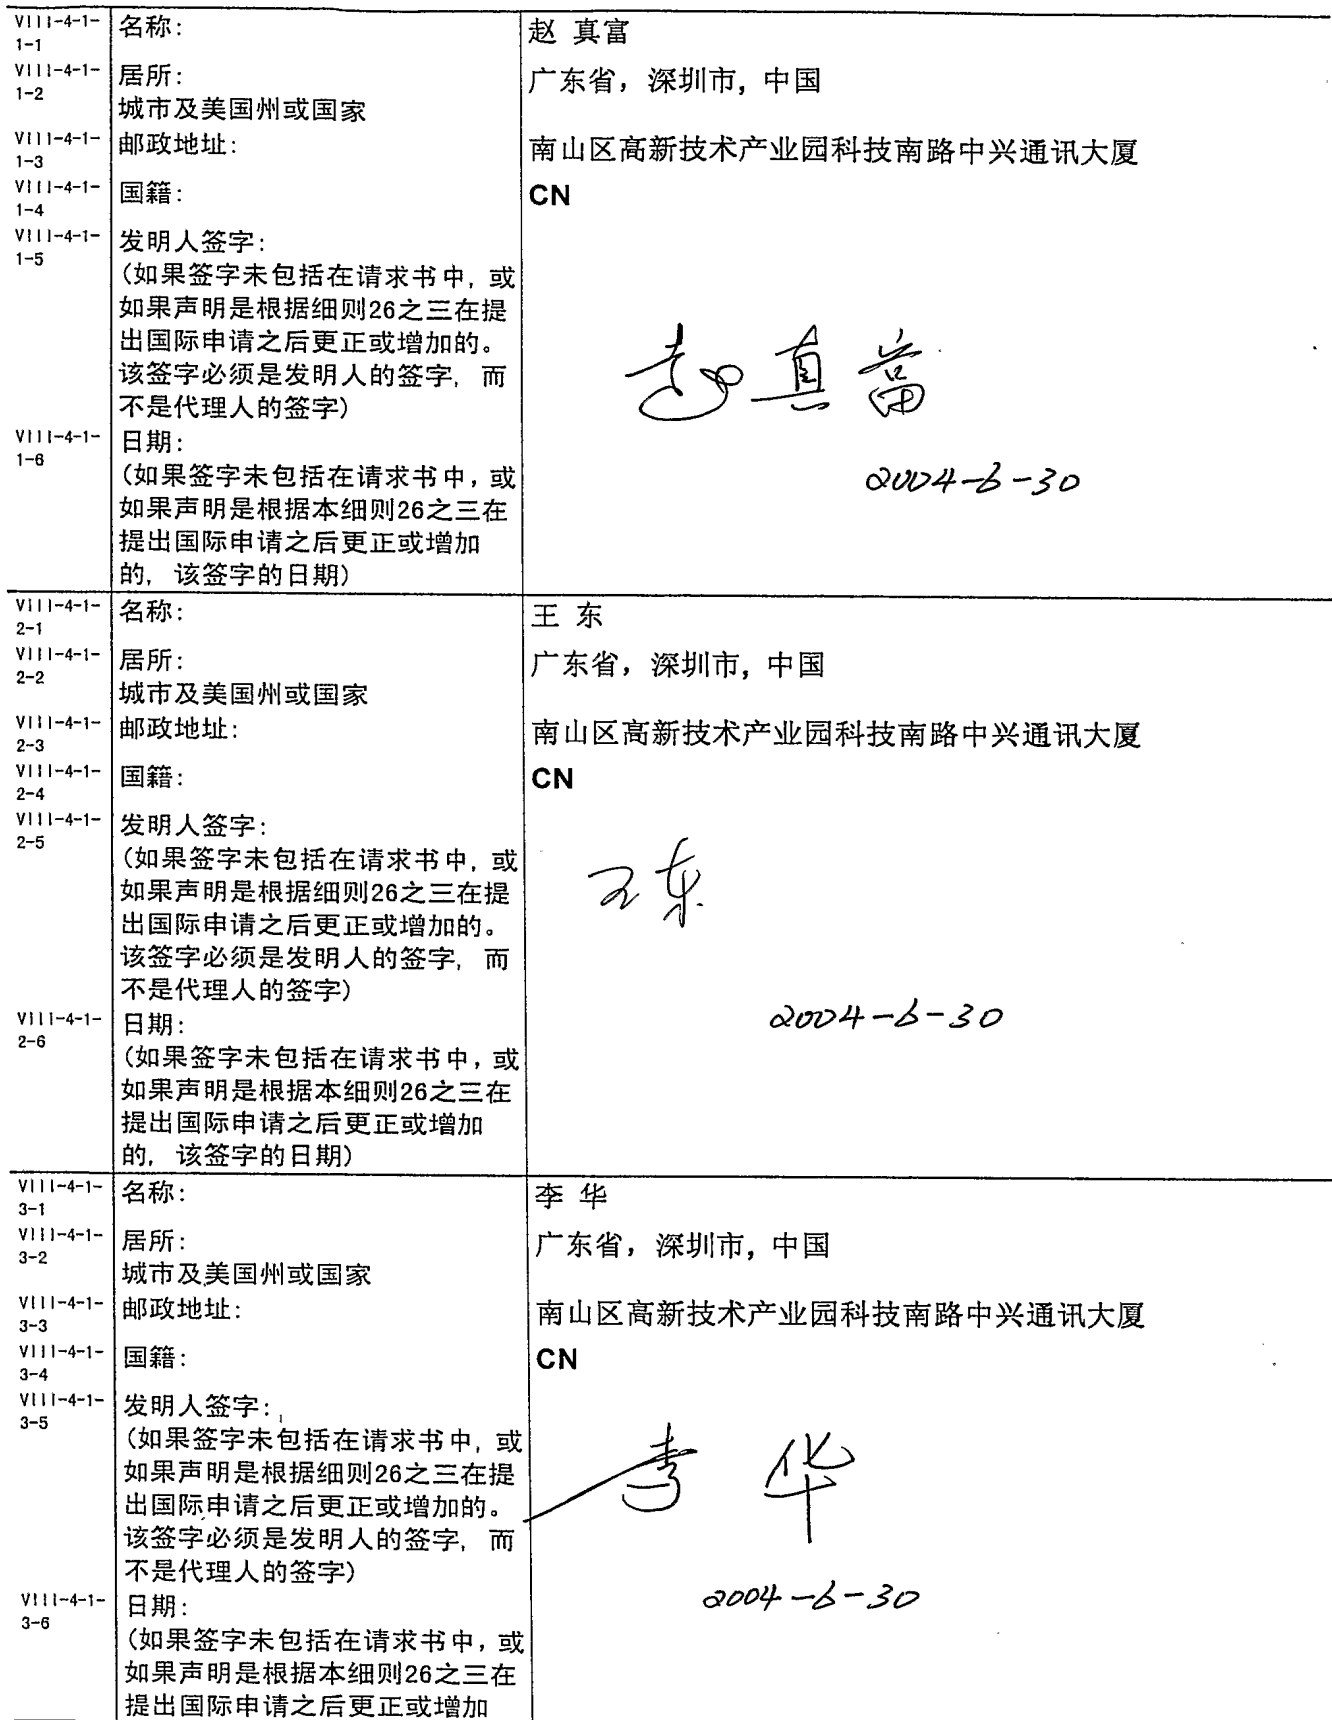 VIII-4-1-1-1 名称: 赵 真富
VIII-4-1-1-2 居所: 广东省, 深圳市, 中国
城市及美国州或国家
VIII-4-1-1-3 邮政地址: 南山区高新技术产业园科技南路中兴通讯大厦
VIII-4-1-1-4 国籍: CN
VIII-4-1-1-5 发明人签字:
(如果签字未包括在请求书中, 或
如果声明是根据细则26之三在提
出国际申请之后更正或增加的。
该签字必须是发明人的签字, 而
不是代理人的签字)
赵真富
VIII-4-1-1-6 日期:
(如果签字未包括在请求书中, 或
如果声明是根据本细则26之三在
提出国际申请之后更正或增加
的, 该签字的日期)
2004-6-30
VIII-4-1-2-1 名称: 王 东
VIII-4-1-2-2 居所: 广东省, 深圳市, 中国
城市及美国州或国家
VIII-4-1-2-3 邮政地址: 南山区高新技术产业园科技南路中兴通讯大厦
VIII-4-1-2-4 国籍: CN
VIII-4-1-2-5 发明人签字:
(如果签字未包括在请求书中, 或
如果声明是根据细则26之三在提
出国际申请之后更正或增加的。
该签字必须是发明人的签字, 而
不是代理人的签字)
王东
2004-6-30
VIII-4-1-2-6 日期:
(如果签字未包括在请求书中, 或
如果声明是根据本细则26之三在
提出国际申请之后更正或增加
的, 该签字的日期)
VIII-4-1-3-1 名称: 李 华
VIII-4-1-3-2 居所: 广东省, 深圳市, 中国
城市及美国州或国家
VIII-4-1-3-3 邮政地址: 南山区高新技术产业园科技南路中兴通讯大厦
VIII-4-1-3-4 国籍: CN
VIII-4-1-3-5 发明人签字:
(如果签字未包括在请求书中, 或
如果声明是根据细则26之三在提
出国际申请之后更正或增加的。
该签字必须是发明人的签字, 而
不是代理人的签字)
李 华
VIII-4-1-3-6 日期: 2004-6-30
(如果签字未包括在请求书中, 或
如果声明是根据本细则26之三在
提出国际申请之后更正或增加